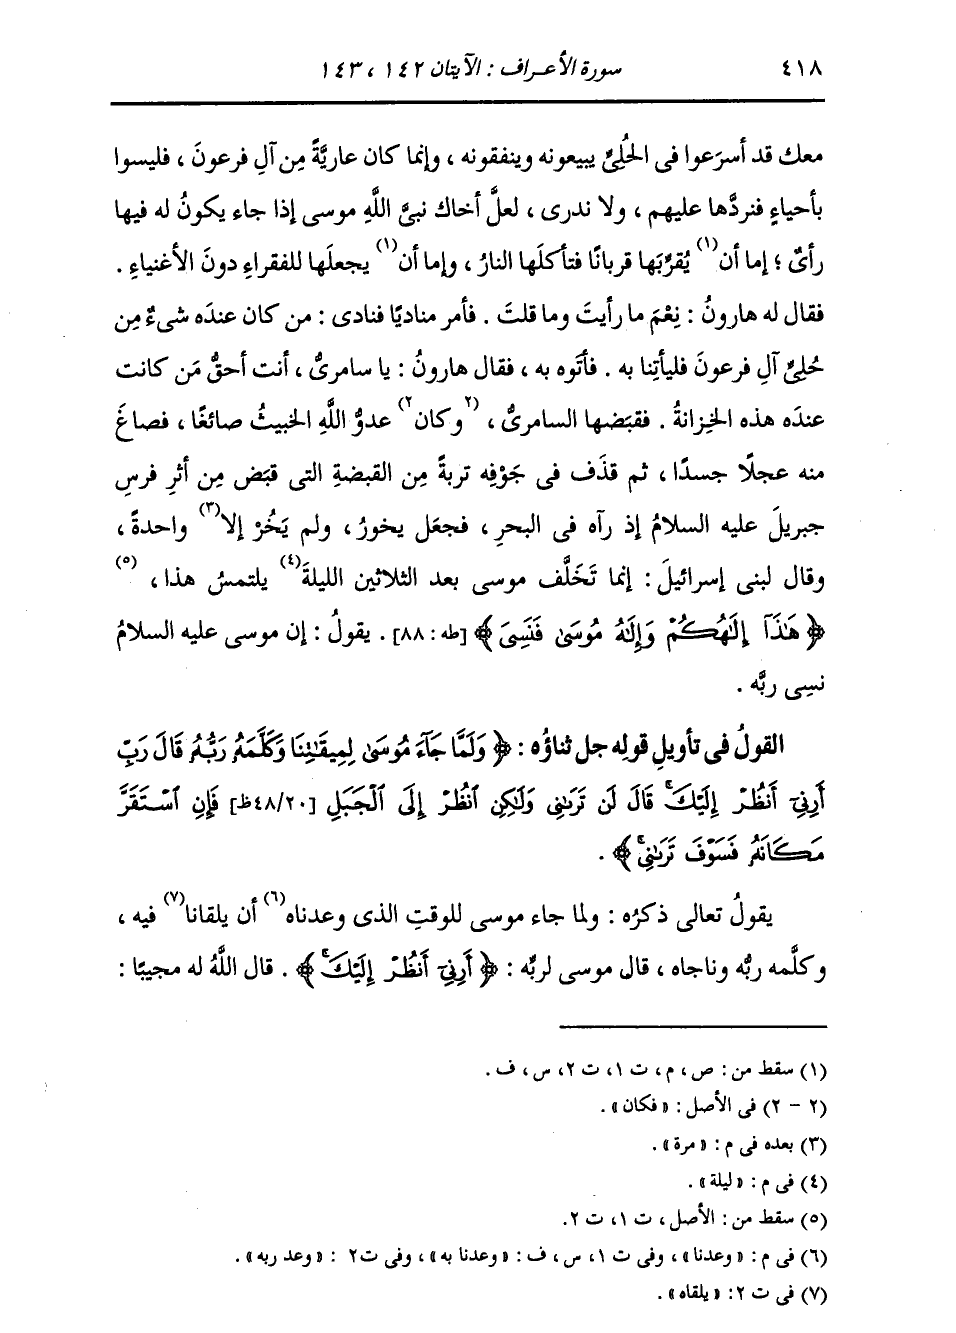 ٤١٨ سورة الأعراف : الآيتان ١٤٢ ، ١٤٣
معك قد أسرَعوا فى الحُلِيِّ يبيعونه وينفقونه ، وإنما كان عاريَّةً مِن آلِ فرعونَ ، فليسوا
بأحياءٍ فنردَّها عليهم ، ولا ندرى ، لعلَّ أخاك نبىَّ اللَّهِ موسى إذا جاء يكونُ له فيها
رأىٌ ؛ إما أن(١) يُقرِّبَها قربانًا فتأكلَها النارُ ، وإما أن(١) يجعلَها للفقراءِ دونَ الأغنياءِ .
فقال له هارونُ : نِعْمَ ما رأيتَ وما قلتَ . فأمر مناديًا فنادى : من كان عندَه شىءٌ مِن
حُلِيِّ آلِ فرعونَ فليأتِنا به . فأتَوه به ، فقال هارونُ : يا سامرىُّ ، أنت أحقُّ مَن كانت
عندَه هذه الخِزانةُ . فقبَضها السامرىُّ ، (٢وكان٢) عدوُّ اللَّهِ الخبيثُ صائغًا ، فصاغَ
منه عجلًا جسدًا ، ثم قذَف فى جَوْفِه تربةً مِن القبضةِ التى قبَض مِن أثرِ فرسِ
جبريلَ عليه السلامُ إذ رآه فى البحرِ ، فجعَل يخورُ ، ولم يَخُرْ إلا(٣) واحدةً ،
وقال لبنى إسرائيلَ : إنما تَخَلَّف موسى بعد الثلاثين الليلةَ(٤) يلتمسُ هذا ، (٥)
﴿ هَٰذَآ إِلَٰهُكُمْ وَإِلَٰهُ مُوسَىٰ فَنَسِىَ ﴾ [طه : ٨٨] . يقولُ : إن موسى عليه السلامُ
نسِى ربَّه .
القولُ فى تأويلِ قولِه جل ثناؤُه : ﴿ وَلَمَّا جَآءَ مُوسَىٰ لِمِيقَٰتِنَا وَكَلَّمَهُۥ رَبُّهُۥ قَالَ رَبِّ
أَرِنِىٓ أَنظُرْ إِلَيْكَ ۚ قَالَ لَن تَرَىٰنِى وَلَٰكِنِ ٱنظُرْ إِلَى ٱلْجَبَلِ [٤٨/٢٠ظ] فَإِنِ ٱسْتَقَرَّ
مَكَانَهُۥ فَسَوْفَ تَرَىٰنِى ۚ ﴾ .
يقولُ تعالى ذكرُه : ولما جاء موسى للوقتِ الذى وعدناه(٦) أن يلقانا(٧) فيه ،
وكلَّمه ربُّه وناجاه ، قال موسى لربِّه : ﴿ أَرِنِىٓ أَنظُرْ إِلَيْكَ ۚ ﴾ . قال اللَّهُ له مجيبًا :
(١) سقط من : ص ، م ، ت ١، ت ٢، س ، ف .
(٢ - ٢) فى الأصل : « فكان » .
(٣) بعده فى م : « مرة » .
(٤) فى م : « ليلة » .
(٥) سقط من : الأصل ، ت ١، ت ٢.
(٦) فى م : « وعدنا » ، وفى ت ١، س ، ف : « وعدنا به » ، وفى ت٢ : « وعد ربه » .
(٧) فى ت ٢: « يلقاه » .